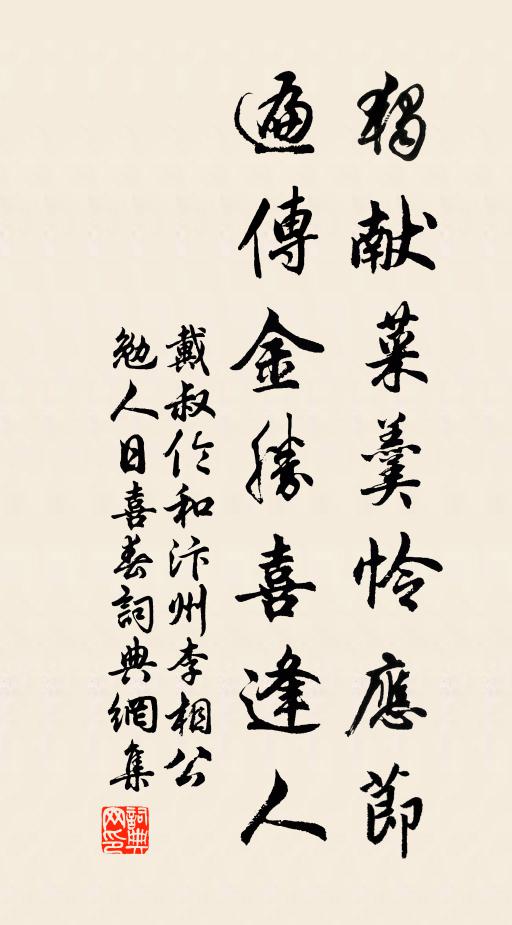 獨献菜羹怜應節
遍傳金勝喜逢人
戴叔伦和汴州李相公
勉人日喜春詞典網集
詞典網印